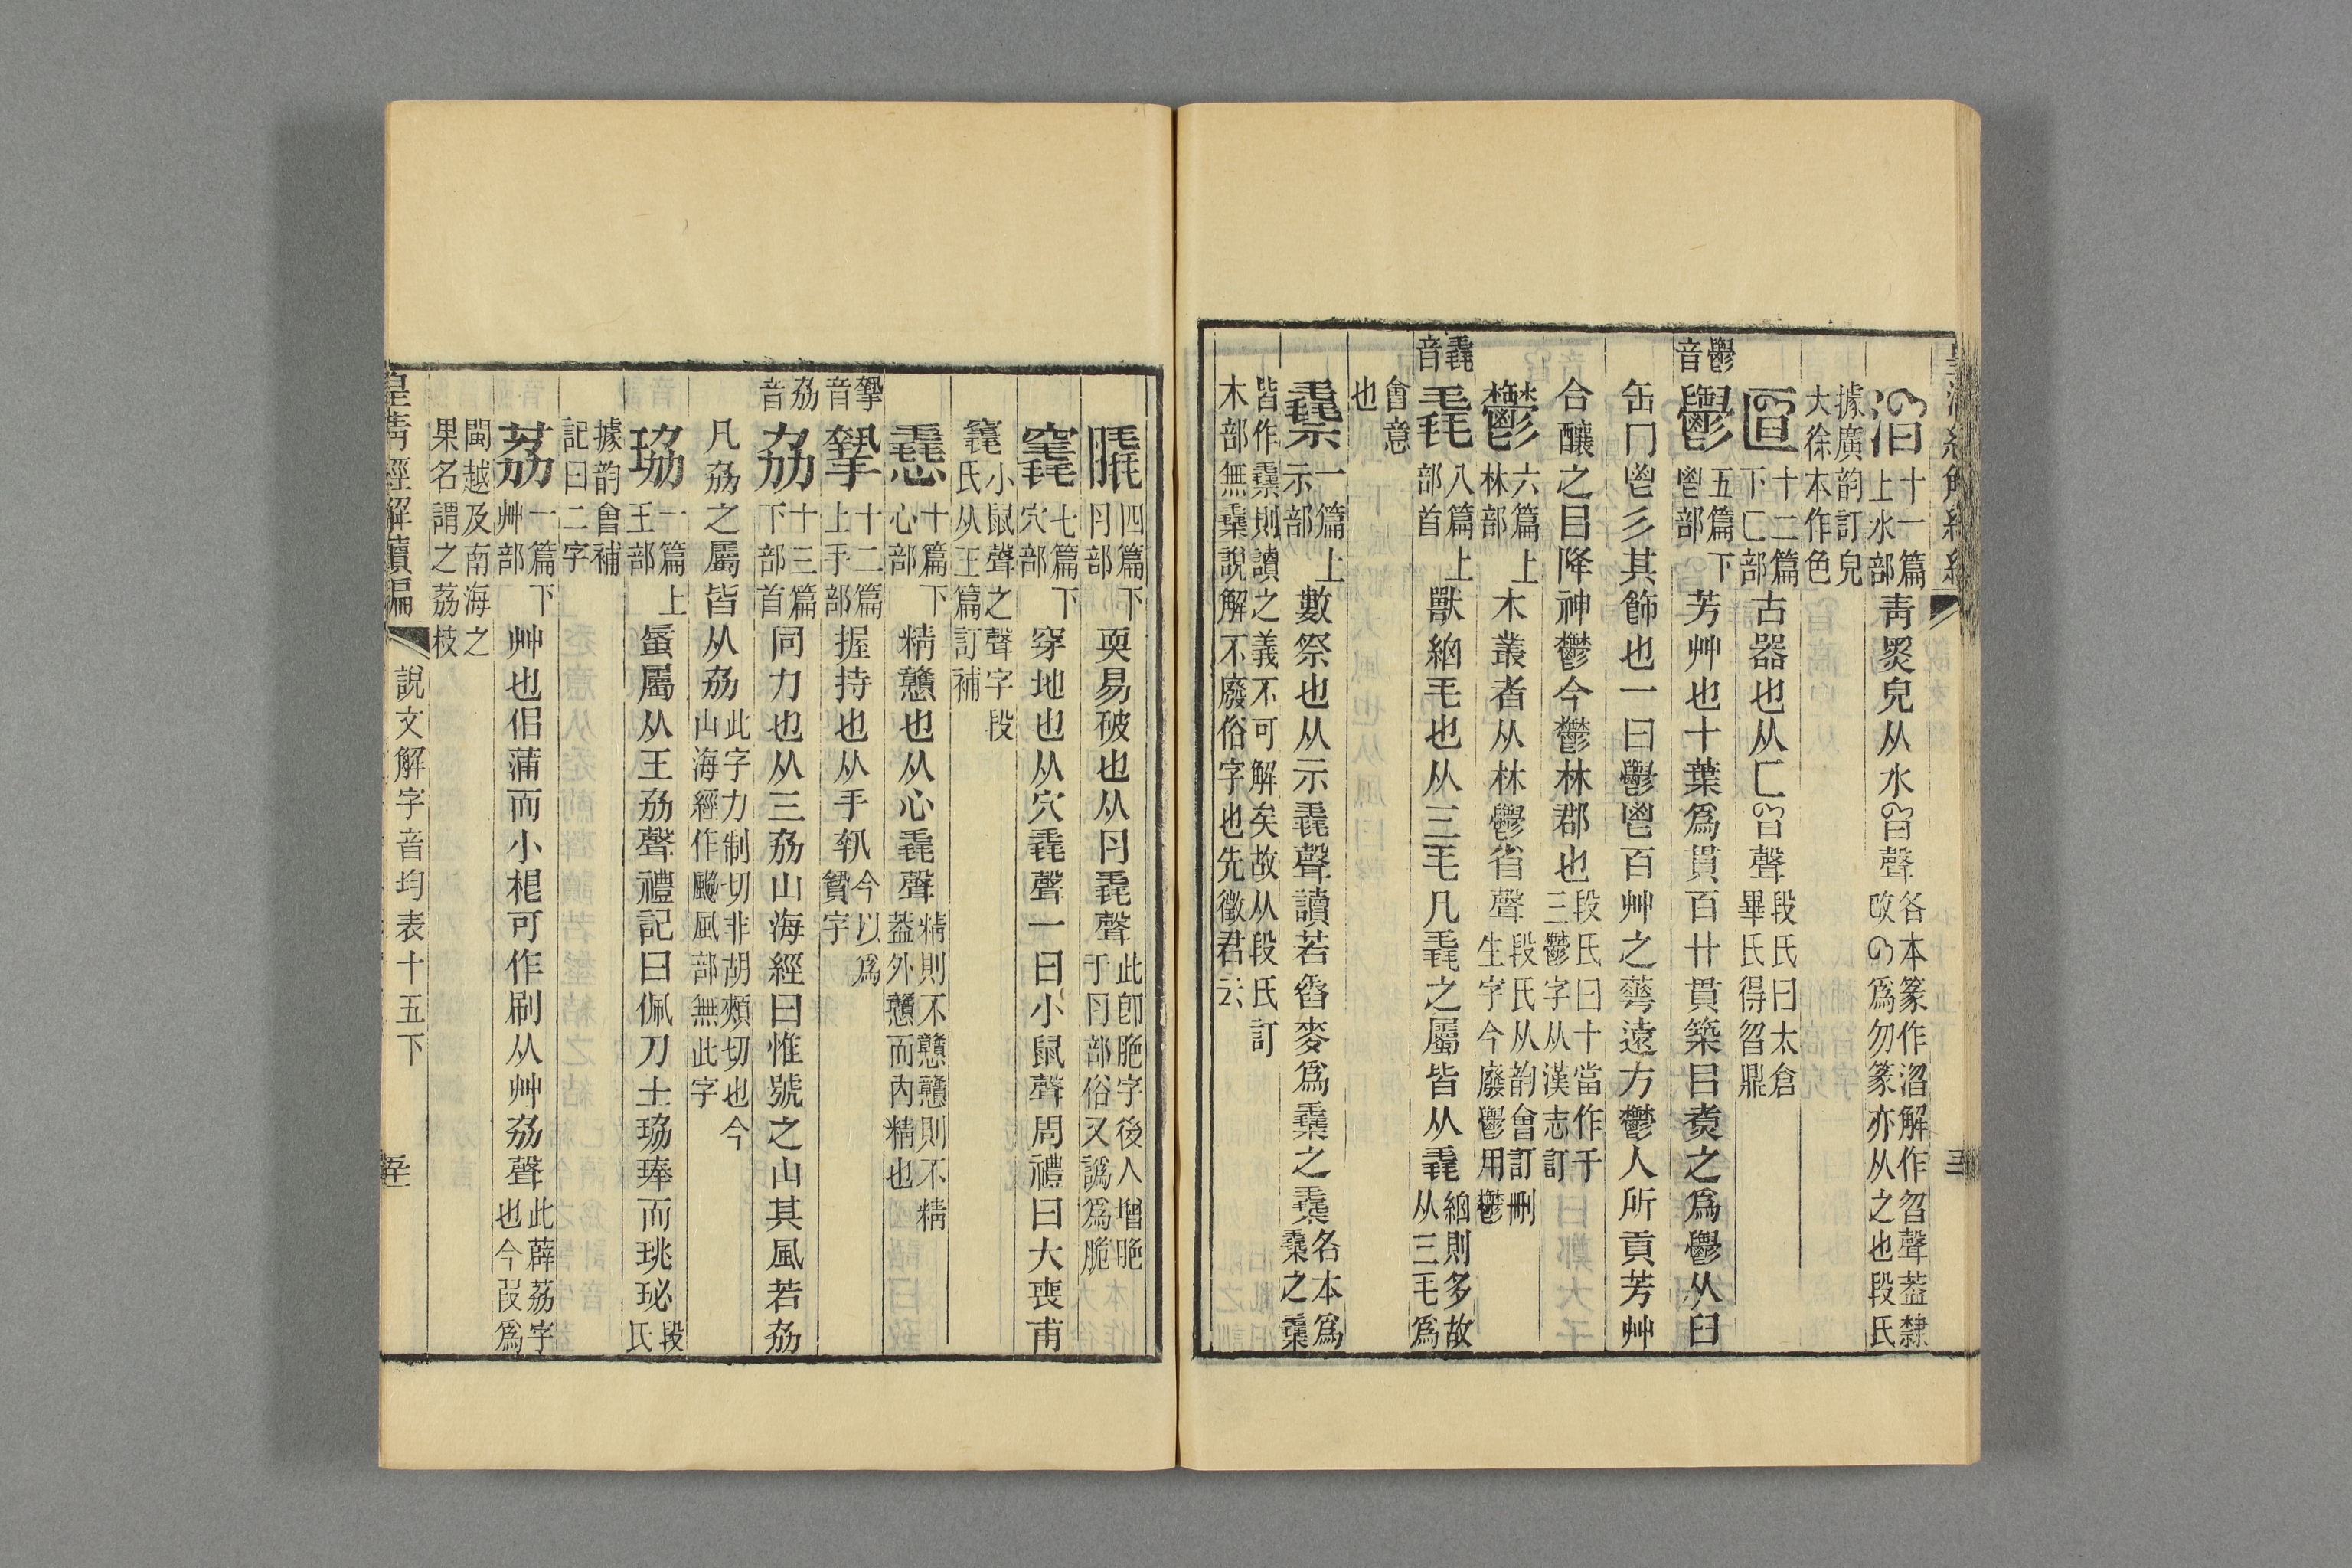 ⿰氵㫚十一篇上水部青黑皃从水㫚聲各本篆作淴解作曶聲葢隸改爲勿篆亦从之也段氏
據廣韵訂皃大徐本作色
匫十二篇下匚部古器也从匚㫚聲段氏曰太倉畢氏得曶鼎
𩰪音𩰪五篇下鬯部芳艸也十葉爲貫百廿貫築㠯煑之爲𩰪从臼
缶冂鬯彡其飾也一曰𩰪鬯百艸之蕚遠方鬱人所貢芳艸
合釀之㠯降神鬱今鬱林郡也段氏曰十當作于三鬱字从漢志訂
鬱六篇上林部木叢者从林𩰪省聲段氏从韵會訂刪生字今廢𩰪用鬱
毳音毳八篇上部首獸細毛也从三毛凡毳之屬皆从毳細則多故从三毛爲
會意也
⿱毳示一篇上示部數祭也从示毳聲讀若舂麥爲⿱毳木之⿱毳木各本爲⿱毳木之⿱毳木
皆作⿱毳示則讀之義不可解矣故从段氏訂木部無⿱毳木說解不廢俗字也先徵君云
⿰⺼毳四篇下肉部耎易破也从肉毳聲此卽脃字後人增脃于肉部俗又譌爲脆
竁七篇下穴部穿地也从穴毳聲一曰小鼠聲周禮曰大喪甫
竁小鼠聲之聲字段氏从玉篇訂補
⿱毳心十篇下心部精戇也从心毳聲精則不戇戇則不精葢外戇而內精也
摯音摯十二篇上手部握持也从手執今以爲贄字
劦音劦十三篇下部首同力也从三力山海經曰惟號之山其風若劦
凡劦之屬皆从劦此字力制切非胡頰切也今山海經作飈風部無此字
珕一篇上王部蜃屬从王劦聲禮記曰佩刀士珕琫而珧珌段氏
據韵會補記曰二字
荔一篇下艸部艸也佀蒲而小根可作刷从艸劦聲此薜荔字也今叚爲
閩越及南海之果名謂之荔枝
皇淸經解續編 說文解字音均表十五下